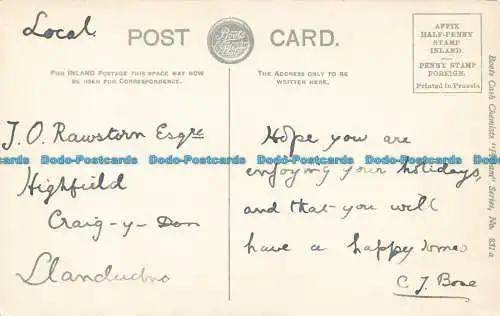 Local.
POST CARD.
Boots Cash Chemists
AFFIX
HALF-PENNY
STAMP
INLAND.
PENNY STAMP
FOREIGN.
Printed in Prussia
FOR INLAND POSTAGE THIS SPACE MAY NOW
BE USED FOR CORRESPONDENCE.
THE ADDRESS ONLY TO BE
WRITTEN HERE.
J. O. Rawstorn Esqre
Highfield
Craig-y-Don
Llandudno
Hope you are
enjoying your holidays,
and that you will
have a happy
C J. Bone
Boots Cash Chemists "Pelham" Series, No. 831a
Dodo-Postcards Dodo-Postcards Dodo-Postcards Dodo-Postcards Dodo-Postcards